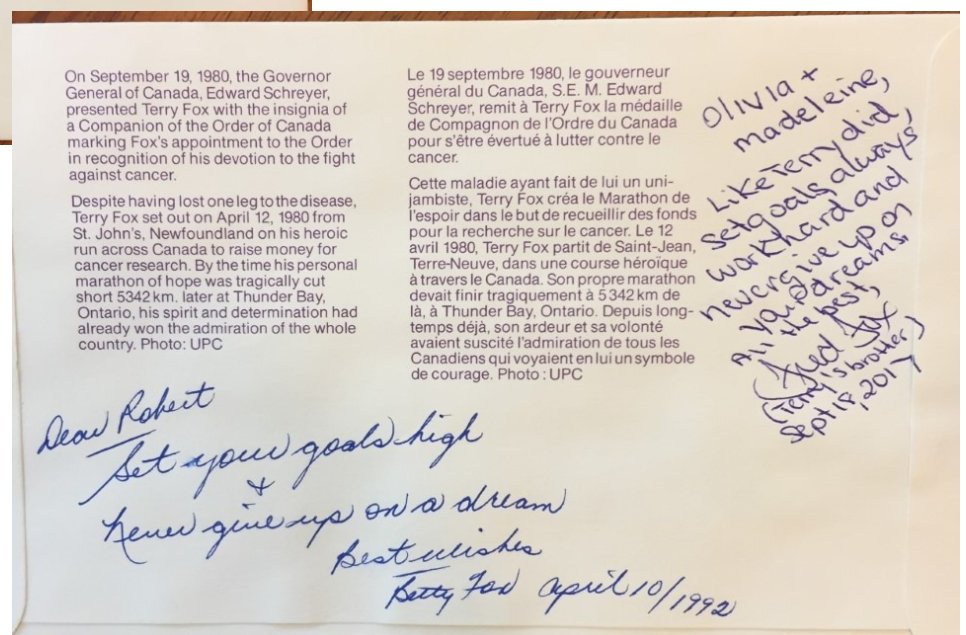 On September 19, 1980, the Governor
General of Canada, Edward Schreyer,
presented Terry Fox with the insignia of
a Companion of the Order of Canada
marking Fox's appointment to the Order
in recognition of his devotion to the fight
against cancer.
Despite having lost one leg to the disease,
Terry Fox set out on April 12, 1980 from
St. John's, Newfoundland on his heroic
run across Canada to raise money for
cancer research. By the time his personal
marathon of hope was tragically cut
short 5342 km. later at Thunder Bay,
Ontario, his spirit and determination had
already won the admiration of the whole
country. Photo: UPC
Le 19 septembre 1980, le gouverneur
général du Canada, S.E. M. Edward
Schreyer, remit à Terry Fox la médaille
de Compagnon de l'Ordre du Canada
pour s'être évertué à lutter contre le
cancer.
Cette maladie ayant fait de lui un uni-
jambiste, Terry Fox créa le Marathon de
l'espoir dans le but de recueillir des fonds
pour la recherche sur le cancer. Le 12
avril 1980, Terry Fox partit de Saint-Jean,
Terre-Neuve, dans une course héroïque
à travers le Canada. Son propre marathon
devait finir tragiquement à 5342 km de
là, à Thunder Bay, Ontario. Depuis long-
temps déjà, son ardeur et sa volonté
avaient suscité l'admiration de tous les
Canadiens qui voyaient en lui un symbole
de courage. Photo : UPC
Olivia +
madeleine,
Like Terry did,
set goals, always
work hard and
never give up on
your dreams.
All the best,
Fred Fox
(Terry's brother)
Sept 18, 2017
Dear Robert
Set your goals high
+
Never give up on a dream
Best wishes
Betty Fox April 10/1992